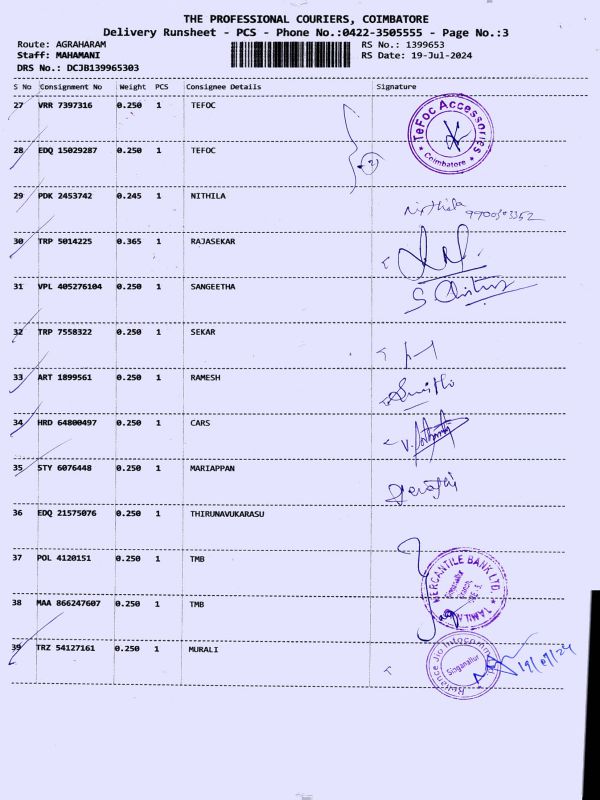 THE PROFESSIONAL COURIERS, COIMBATORE
Delivery Runsheet - PCS - Phone No.:0422-3505555 - Page No.:3
Route: AGRAHARAM RS No.: 1399653
Staff: MAHAMANI RS Date: 19-Jul-2024
DRS No.: DCJB139965303
S No Consignment No Weight PCS Consignee Details Signature
27 VRR 7397316 0.250 1 TEFOC
TeFoc Accessories
Coimbatore
28 EDQ 15029287 0.250 1 TEFOC
2
29 PDK 2453742 0.245 1 NITHILA
Nirthila
30 TRP 5014225 0.365 1 RAJASEKAR
31 VPL 405276104 0.250 1 SANGEETHA
32 TRP 7558322 0.250 1 SEKAR
33 ART 1899561 0.250 1 RAMESH
34 HRD 64800497 0.250 1 CARS
35 STY 6076448 0.250 1 MARIAPPAN
36 EDQ 21575076 0.250 1 THIRUNAVUKARASU
37 POL 4120151 0.250 1 TMB
MERCANTILE BANK LTD.
38 MAA 866247607 0.250 1 TMB
39 TRZ 54127161 0.250 1 MURALI
Reliance Jio Infocomm
Singanallur
19/07/24